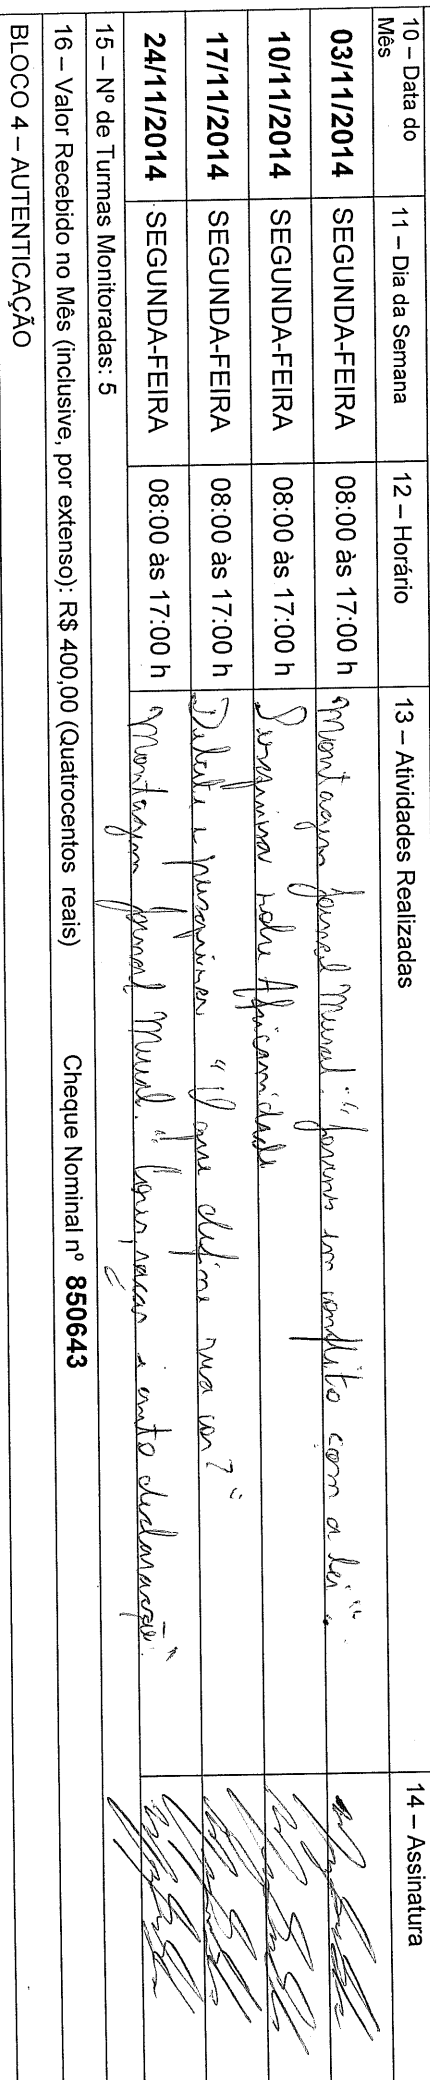 10 – Data do Mês 11 – Dia da Semana 12 – Horário 13 – Atividades Realizadas 14 – Assinatura
03/11/2014 SEGUNDA-FEIRA 08:00 às 17:00 h Montagem Jornal Mural: "Jovens em conflito com a lei".
10/11/2014 SEGUNDA-FEIRA 08:00 às 17:00 h Pesquisa sobre Africanidade
17/11/2014 SEGUNDA-FEIRA 08:00 às 17:00 h Debate e pesquisa "O que define sua cor?"
24/11/2014 SEGUNDA-FEIRA 08:00 às 17:00 h Montagem Jornal Mural. "Cores, raças e auto declaração"
15 – Nº de Turmas Monitoradas: 5
16 – Valor Recebido no Mês (inclusive, por extenso): R$ 400,00 (Quatrocentos reais) Cheque Nominal nº 850643
BLOCO 4 – AUTENTICAÇÃO